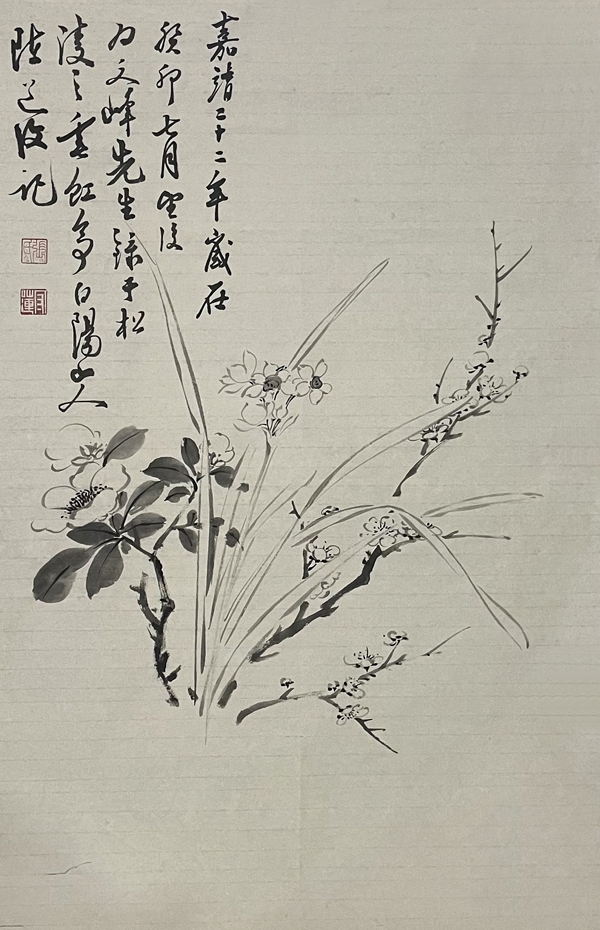 嘉靖二十二年歲在
癸卯七月望後
为文峰先生錄于松
陵之垂虹亭白陽山人
陳道復記